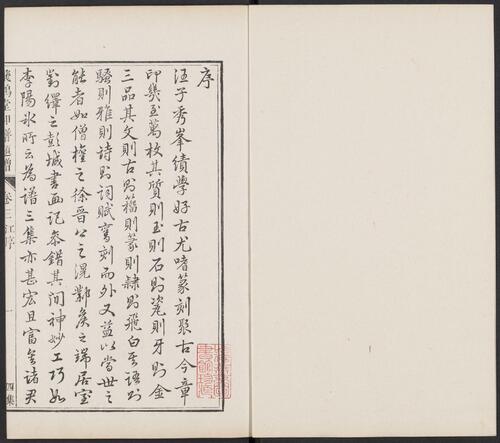 序
汪子秀峯績學好古尤嗜篆刻聚古今章
印幾至萬枚其質則玉則石則瓷則牙則金
三品其文則古則籀則篆則隸則飛白其語則
騷則雅則詩則詞賦寫刻而外又益以當世之
能者如僧權之徐晋公之混鄴矦之端居室
對繹之彭城書画記叅錯其間神妙工巧如
李陽冰所云為譜三集亦甚宏且富矣諸君
飛鴻堂印譜
卷三 江序
一
四集